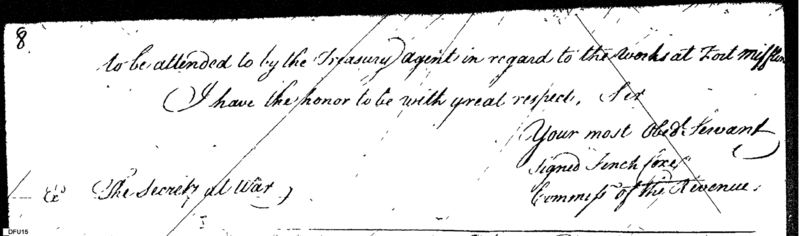 8
to be attended to by the Treasury agent in regard to the works at Fort Mifflin
I have the honor to be with great respect, Sir
Your most Obedt. Servant
signed Tench Coxe
The Secrety at War
Commissr of the Revenue.
DFU15